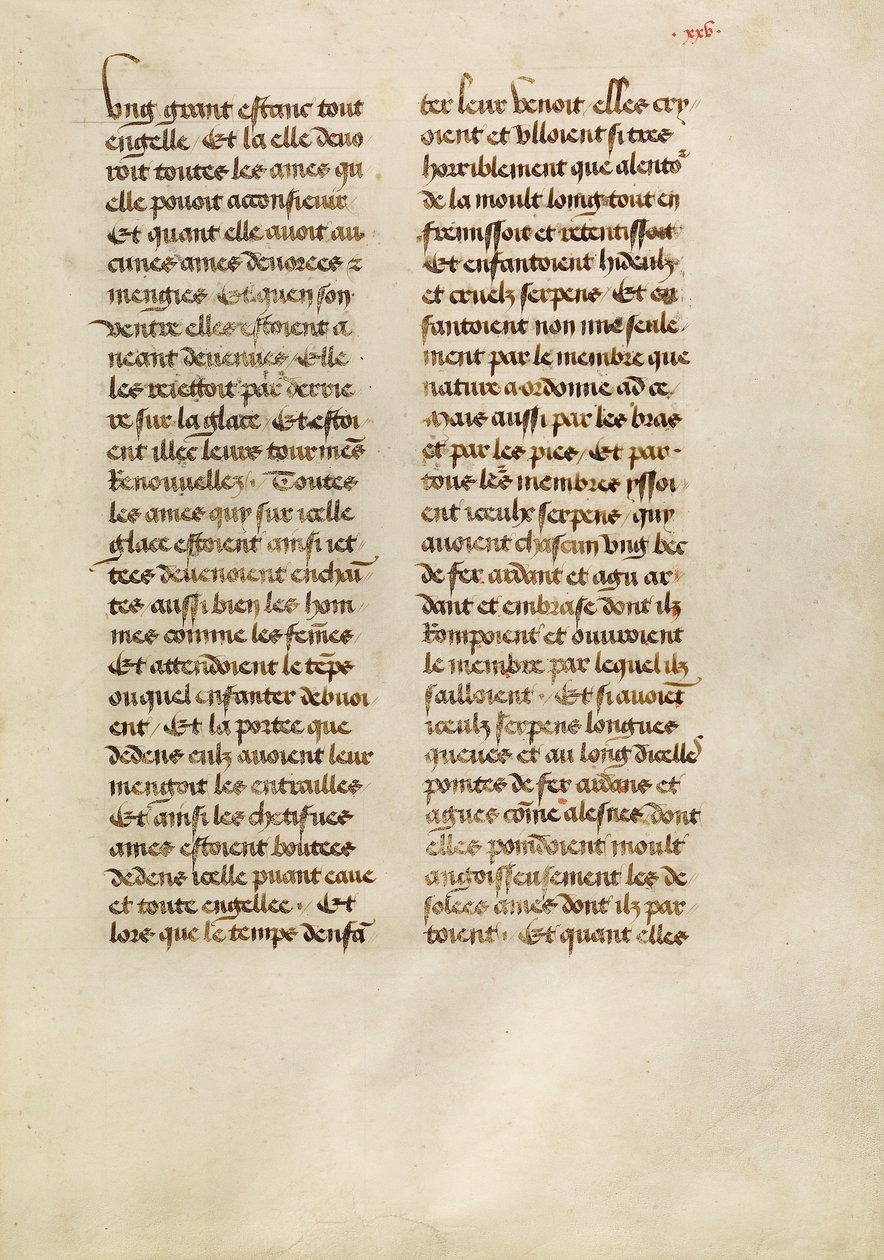 · xxv ·
Ung grant estanc tout
engelle / Et la elle deuo
roit toutes les ames qu
elle pouoit acconsieuir
Et quant elle auoit au
cunes ames deuorees ⁊
mengies Et quen son
ventre elles estoient a
neant deuenues / Elle
les reiettoit par derrie
re sur la glace / Et estoi
ent illec leurs tourmēs
Renouuellez / · Toutes
les ames quy sur icelle
glace estoient ainsi iet-
tees deuenoient enchaī
tes aussi bien les hom
mes comme les fem̄es
Et attendoient le tēps
ouquel enfanter debuoi
ent / Et la portee que
dedens eulz auoient leur
mengoit les entrailles
Et ainsi les chetifues
ames estoient boutees
dedens icelle puant eaue
et toute engellee · / Et
lors que le temps denfā
ter leur venoit / elles cry
oient et vlloient si tres
horriblement que alento᷑
de la moult loing tout en
fremissoit et retentissoit
Et enfantoient hideulz
et cruelz serpens / Et en
fantoient non mie seule
ment par le membre que
nature a ordonne ad ce
Mais aussi par les bras
et par les pies / Et par
tous les membres yssoi
ent iceulx serpens / quy
auoient chascun vng bec
de fer ardant et agu ar
dant et embrase dont ilz
Rompoient et ouuroient
le membre par lequel ilz
sailloient · / Et si auoiēt
iceulz serpens longues
queues et au long dicelle᷑
pointes de fer ardans et
agues com̄e alesnes dont
elles poindoient moult
angoisseusement les de
solees ames dont ilz par
toient · Et quant elles